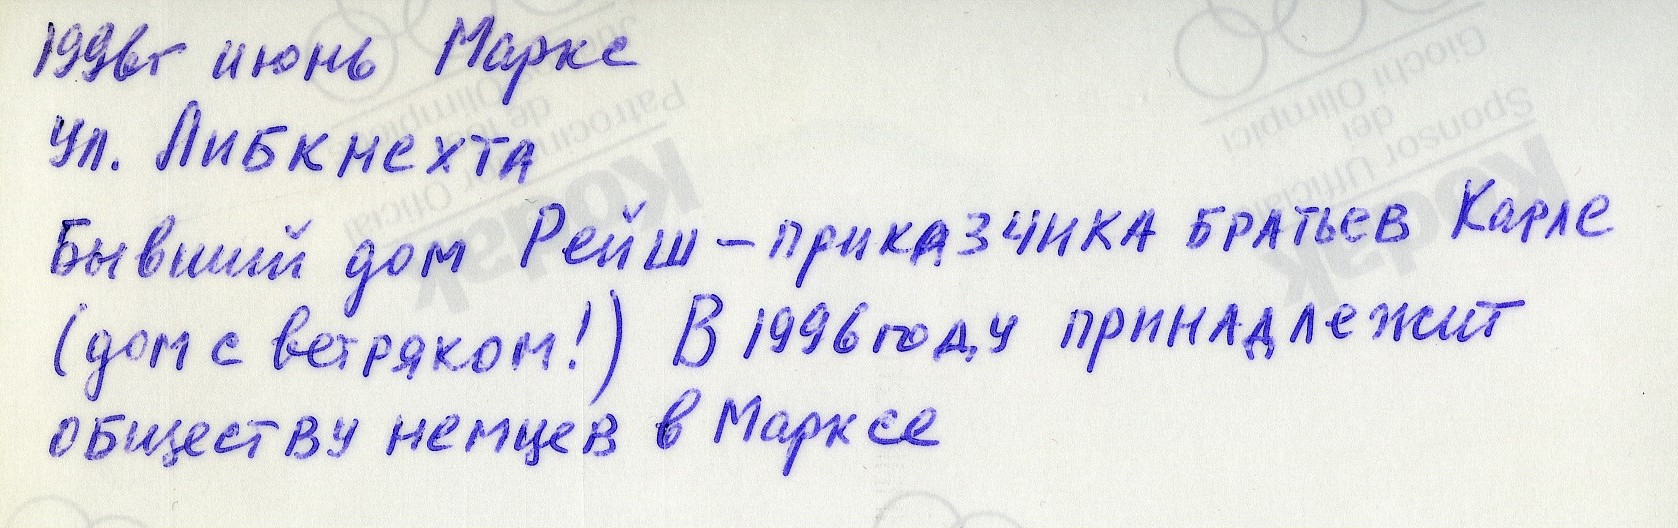 1996г июнь Маркс
Ул. Либкнехта
Бывший дом Рейш – приказчика братьев Карле
(дом с ветряком!) В 1996 году принадлежит
обществу немцев в Марксе
Kodak
Sponsor Ufficiale
dei
Giochi Olimpici
Kodak